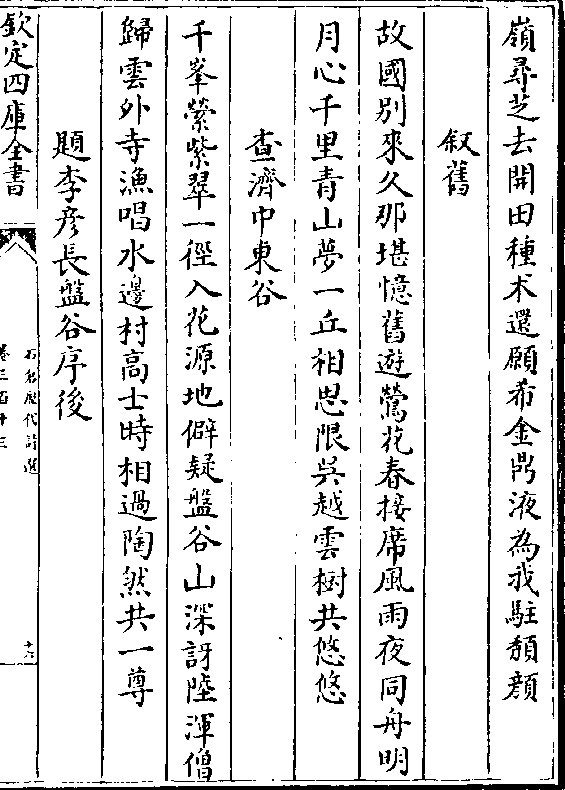 嶺尋芝去開田種术還願希金鼎液為我駐頹顔
叙舊
故國別來久那堪憶舊遊鶯花春接席風雨夜同舟明
月心千里青山夢一丘相思限吳越雲樹共悠悠
查濟中東谷
千峯縈紫翠一徑入花源地僻疑盤谷山深訝陸渾僧
歸雲外寺漁唱水邊村高士時相過陶然共一尊
題李彥長盤谷序後
欽定四庫全書
石倉歷代詩選
卷三百十三
十六